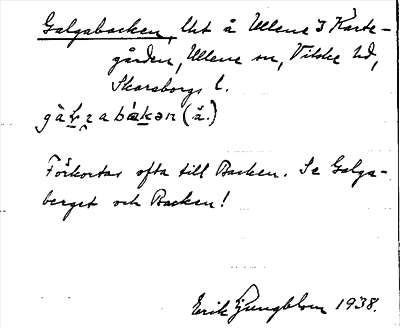 Galgabacken, Ust å Ullene 3 Karte-
gården, Ullene sn, Vilske hd,
Skaraborgs l.
(å.)
Förkortas ofta till Backen. Se Galga-
berget och Backen!
Erik Ljungblom 1938.